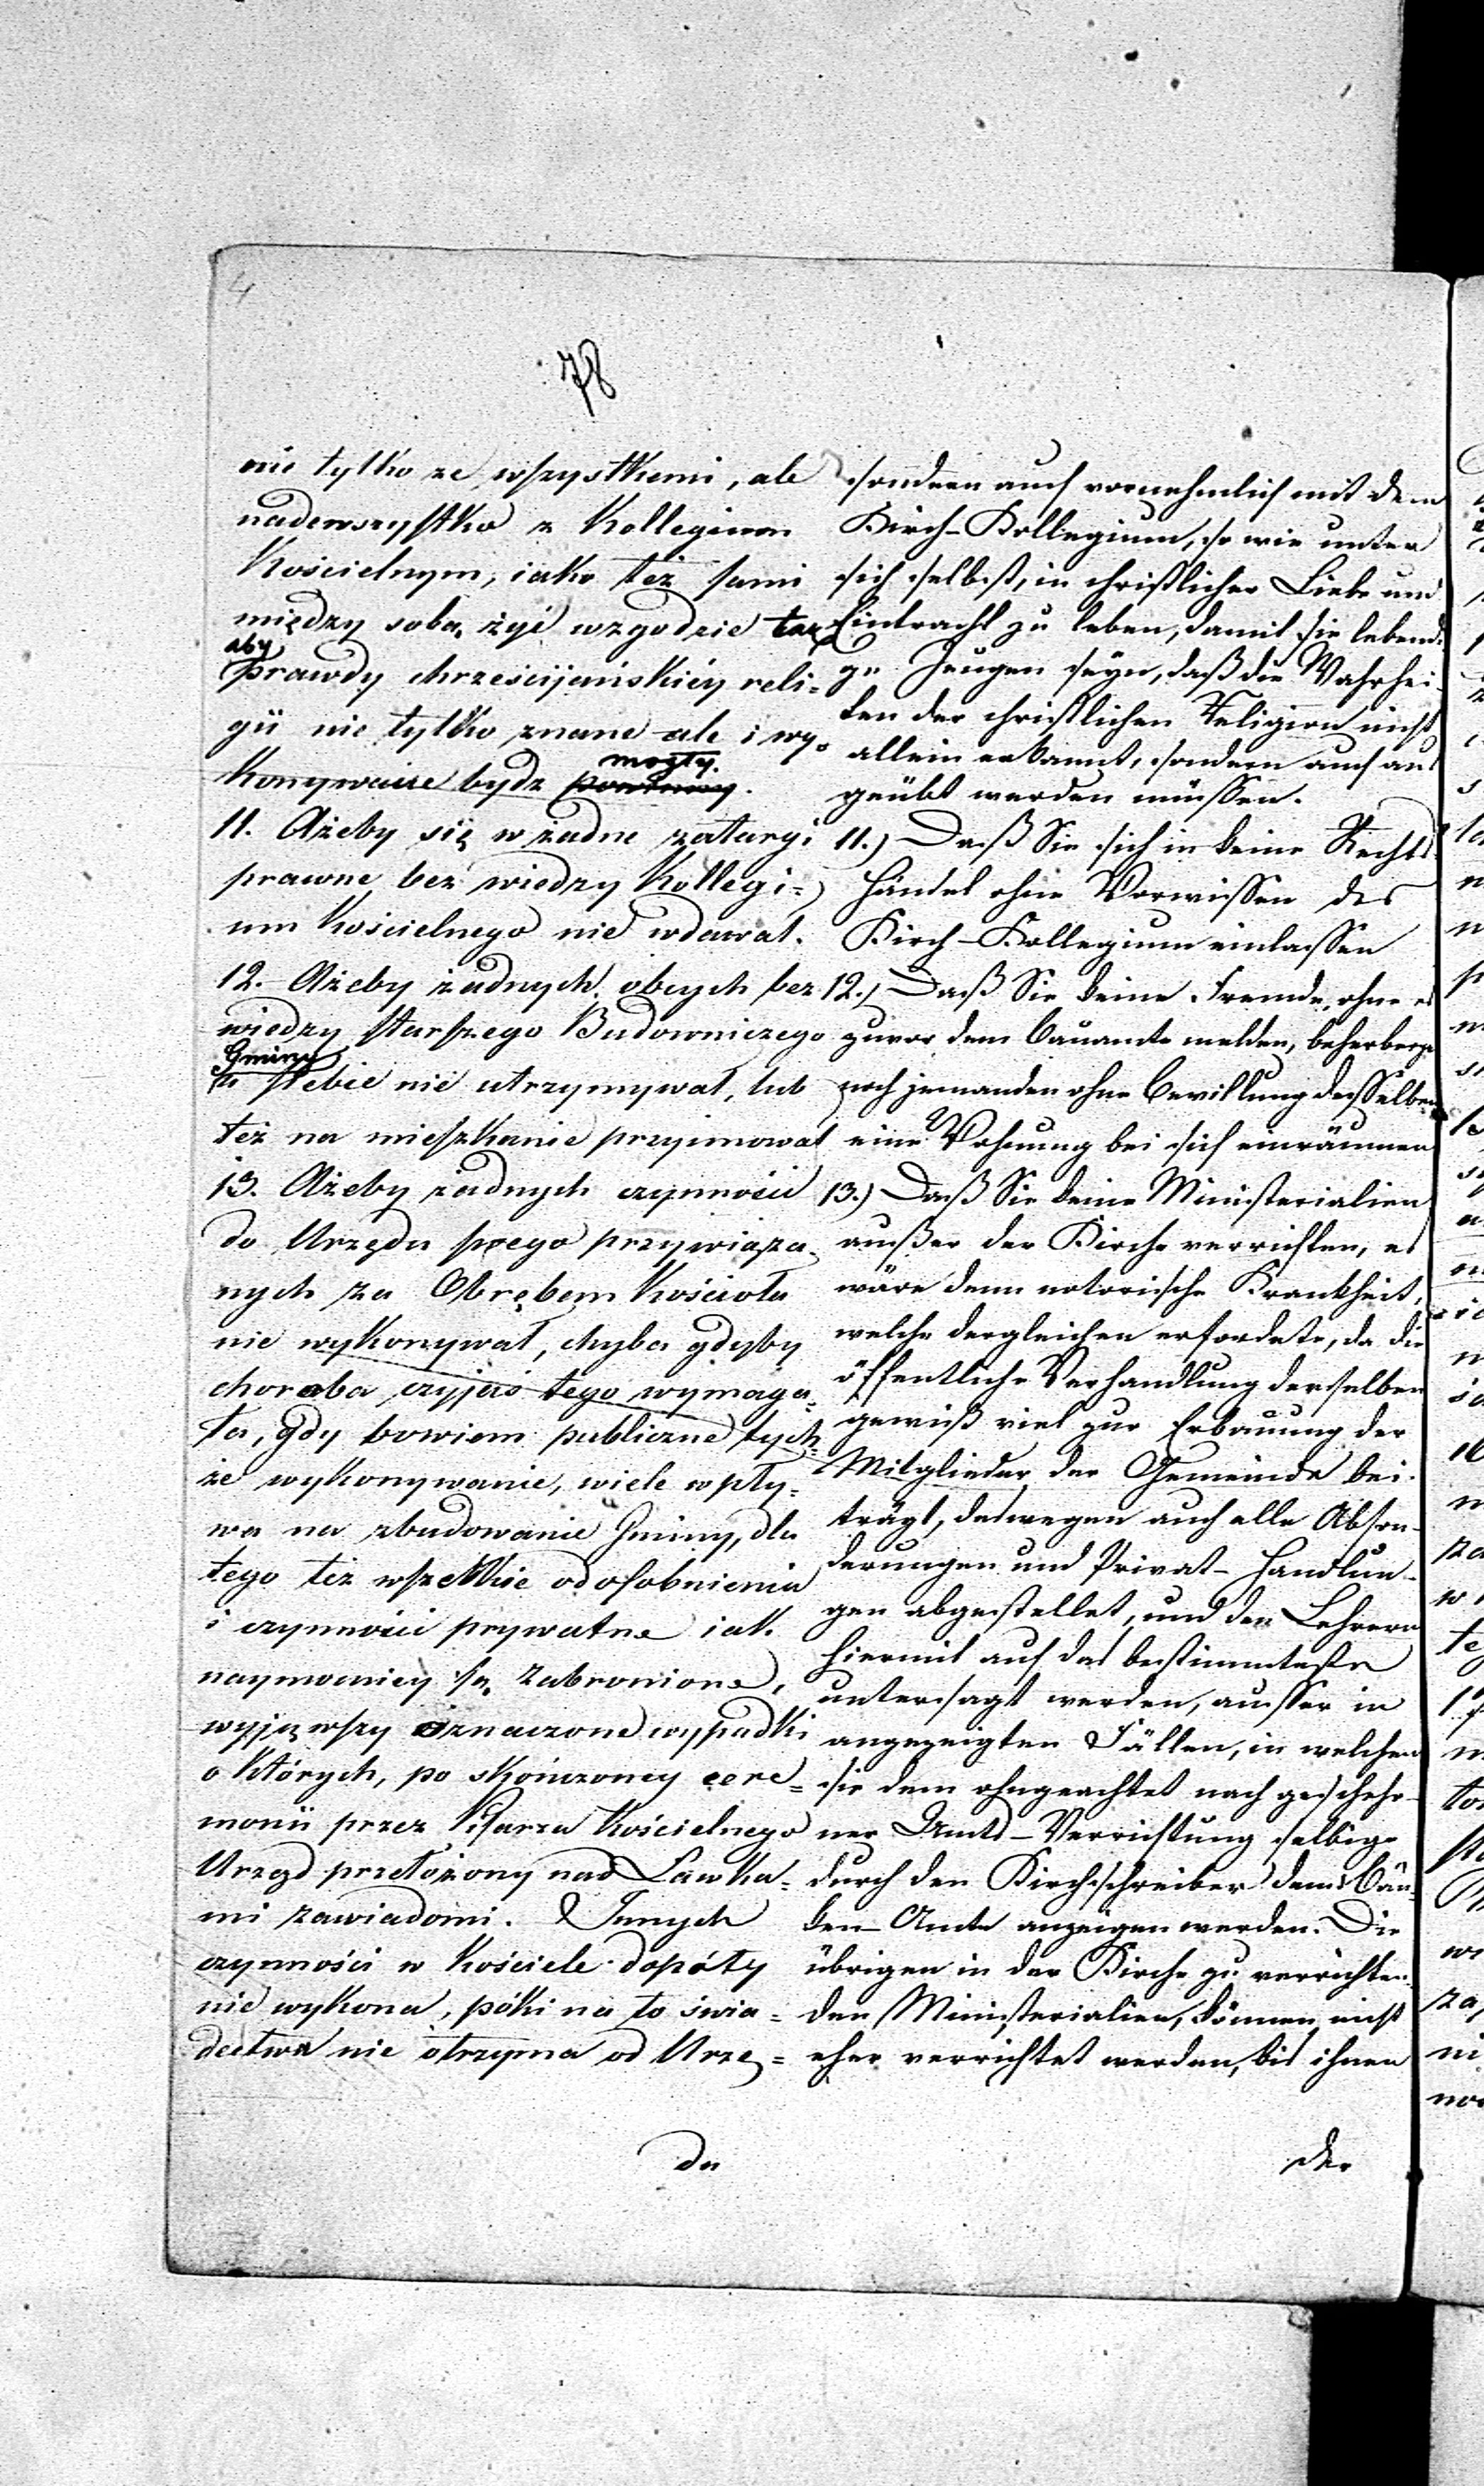 4
78
nie tylko ze wszystkiemi, ale
nadewszystko z Kollegium
Kościelnym, iako też sami
między sobą, żyi wzgodzie tak
aby
prawdy chrześciańskiéy reli=
gii nie tylko znane ale i wy=
mogły.
konywane bydź powinny.
11. Ażeby się w żadne zatargi
prawne bez wiedzy Kollegi=
um Kościelnego nie wdawał.
12. Ażeby żadnych obcych bez
wiedzy starszego Budowniczego
Gminy
u siebie nie utrzymywał, lub
też na mieszkanie przyimował
13. Ażeby żadnych czynności
do Urzędu swego przywiąza=
nych za Obrębem Kościoła
nie wykonywał, chyba gdyby
choroba czyjaś tego wymaga=
ła, gdy bowiem publiczne tych=
że wykonywanie, wiele wpły=
wa na zbudowanie Gminy, dla
tego też wszelkie odosobnienia
i czynności prywatne iak
naymocniey są zabronione,
wyjąwszy oznaczone wypadki
o których, po skończoney cere=
monii przez Pisarza Kościelnego
Urząd przełożony nad Ławka=
mi zawiadomi. Innych
czynności w Kościele dopóty
nie wykona, póki na to świa=
dectwa nie otrzyma od Urzę=
du
sondern auch vornehmlich mit dem
Kirch-Kollegium, so wie unter
sich selbst, in christlicher Liebe und
Eintracht zu leben, damit sie lebendi-
ge Zeugen seyn, daß die Wahrhei-
ten der christlichen Religion nicht
allein erkannt, sondern auch aus
geübt werden müssen.
11.) Daß Sie sich in keine Rechts
Händel ohne Vorwissen des
Kirch-Kollegium einlassen
12.) Daß Sie keine Fremde, ohne es
zuvor dem Bauamte melden, beherberge
noch jemanden ohne Bewillung desselben
eine Wohnung bei sich einräumen
13.) Daß Sie keine Ministerialien
außer der Kirche verrichten, es
wäre denn notorische Krankheit,
welche dergleichen erfordete, da die
öffentliche Verhandlung derselben
gewiß viel zur Erbauung der
Mitglieder der Gemeinde bei-
trägt, deswegen auch alle Abson-
derungen und Privat-Handlun-
gen abgestellet, und den Lehrern
hiermit auf das bestimmteste
untersagt werden, ausser in
angezeigten Fällen, in welchen
sie dem ohngeachtet nach geschehe-
ner Amts-Verrichtung selbige
durch den Kirchschreiber dem Bän-
ken-Amte anzeigen werden. Die
übrigen in der Kirche zu verrichten-
den Ministerialien, können nicht
eher verrichtet werden, bis ihnen
der